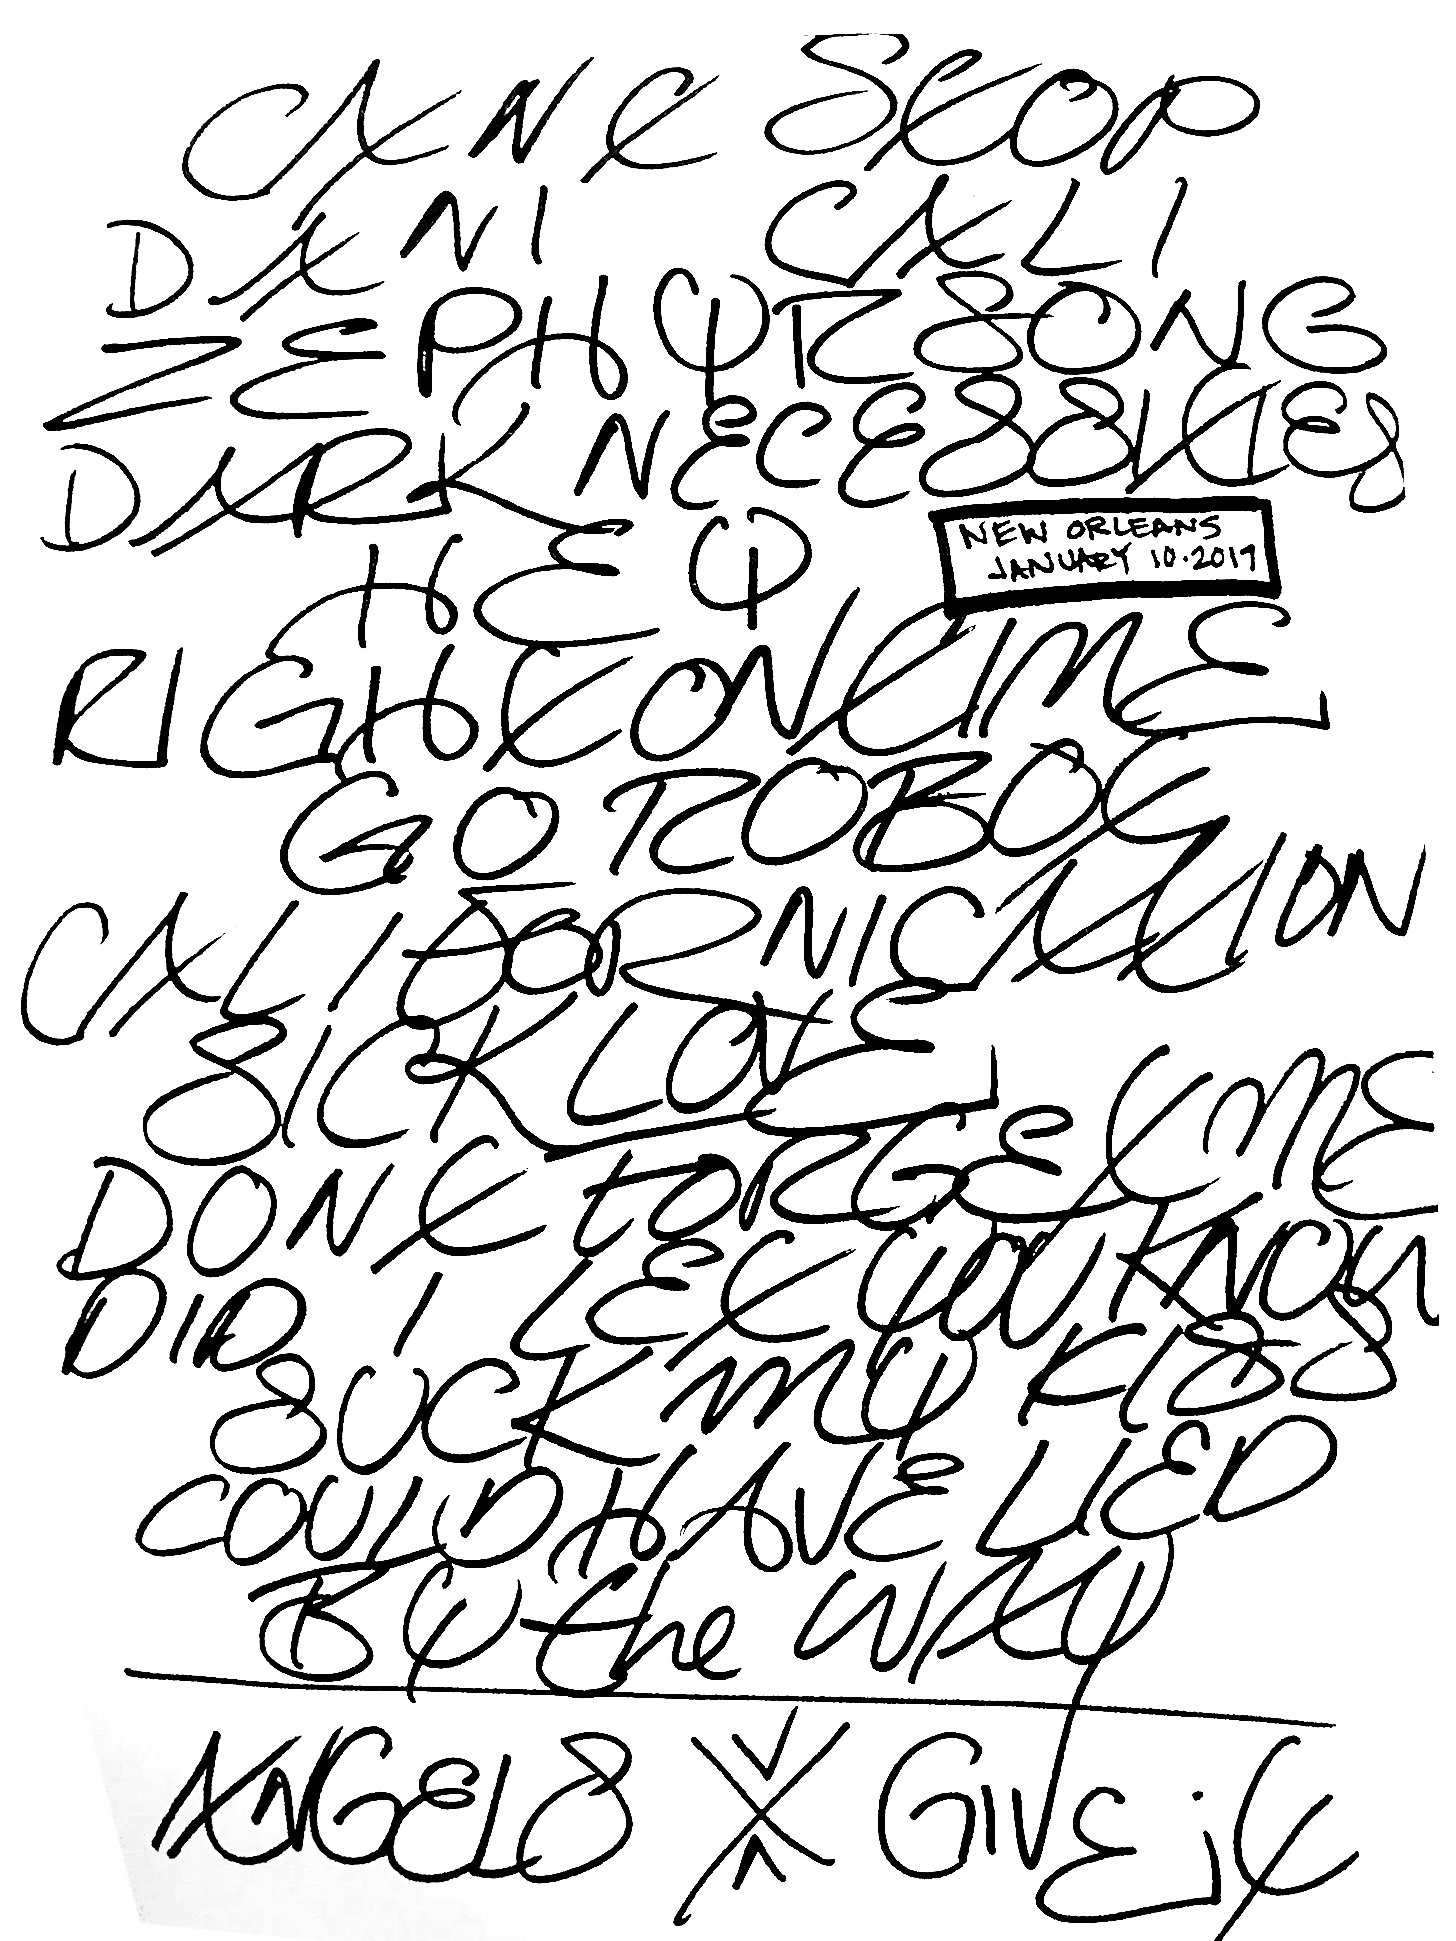 CAN'T STOP
DANI CALI
ZEPHYR SONG
DARK NECESSITIES
HEY
NEW ORLEANS
JANUARY 10.2017
RIGHT ON TIME
GO ROBOT
CALIFORNICATION
SICK LOVE
DONT FORGET ME
DID I LET YOU KNOW
SUCK MY KISS
COULD HAVE LIED
BY the WAY
ANGELS GIVE it